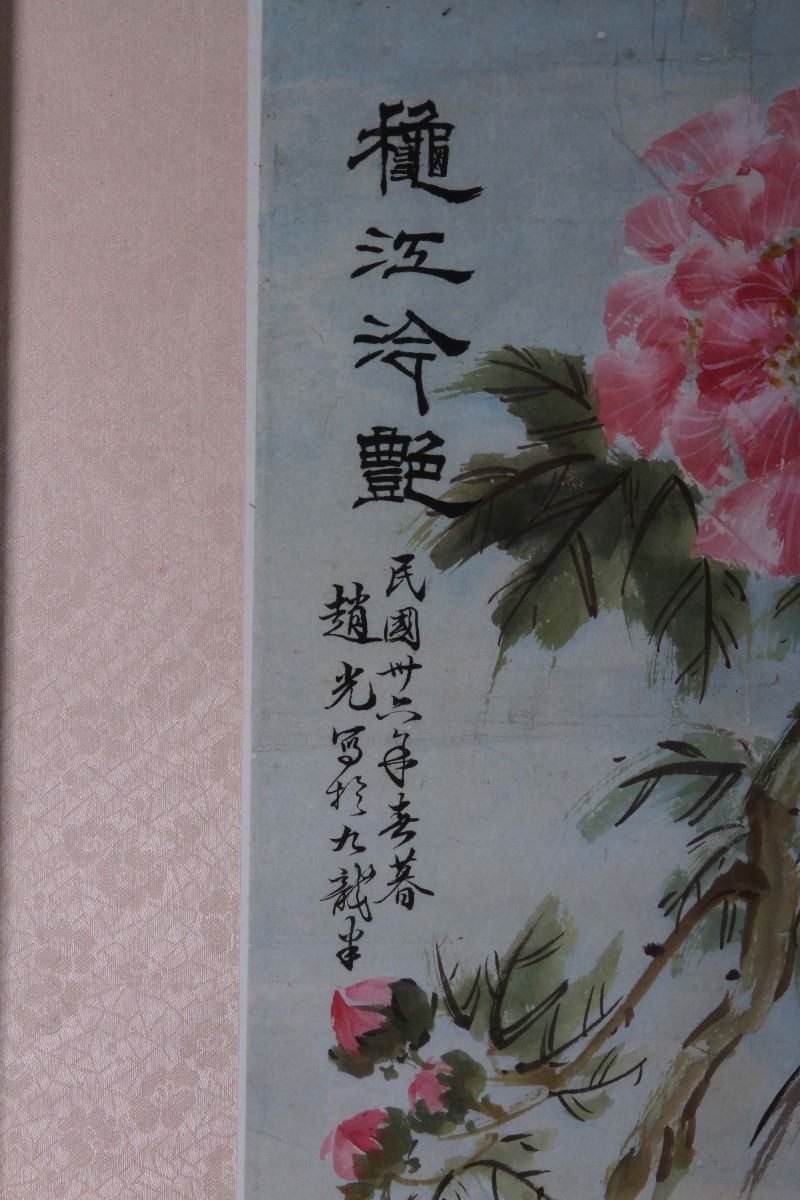 龝江冷艷
民國卅六年春暮
趙光寫於九龍半